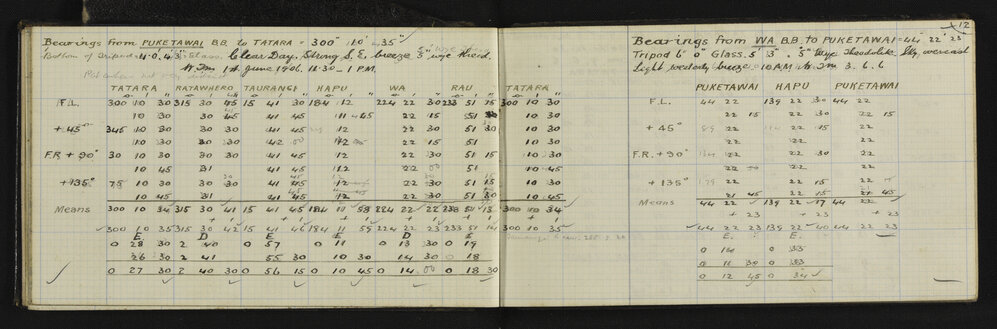 12
Bearings from PUKETAWAI B.B. to TATARA = 300° 10' 35"
Bottom of Tripod 4.0, 4'3" Glass. Clear Day. Strong S.E. breeze 5" wye theod.
W Tm 1st June 1906. 11.30 — 1 P.M.
TATARA RATAWHERO TAURANGI HAPU WA RAU TATARA
F.L. 300 10 30 315 30 45 15 41 30 184 12 224 22 30 233 51 15 300 10 30
10 30 30 45 41 45 11 45 22 15 51 10 30
+ 45° 345 10 30 30 30 41 45 12 22 30 51 30 10 30
10 30 30 30 42 00 12 22 15 51 10 30
F.R + 90° 30 10 30 30 30 41 45 12 22 30 51 15 10 30
10 45 31 41 45 12 22 51 10 45
+135° 75 10 30 30 30 41 45 12 22 30 51 15 10 30
10 45 31 41 45 12 22 30 51 30 10 45
Means 300 10 34 315 30 41 15 41 45 184 11 58 224 22 22 233 51 13 300 10 34
+ 1 + 1 + 1 + 1 + 1 + 1
300 10 35 315 30 42 15 41 46 184 11 59 224 22 23 233 51 14 300 10 35
E D E E D E
0 28 30 2 40 0 57 0 11 0 13 30 0 19
26 30 2 41 55 30 10 30 14 30 0 18
0 27 30 2 40 30 0 56 15 0 10 45 0 14 00 0 18 30
Bearings from WA B.B. to PUKETAWAI = 44 22' 23"
Tripod 6' 0" Glass. 5' 3". 5" Wye Theodolite. Sky overcast
Light westerly breeze. 10 A.M. W Tm 3. 6. 6
PUKETAWAI HAPU PUKETAWAI
F.L. 44 22 139 22 30 44 22
22 15 22 30 22 15
+ 45° 89 22 22 22
22 22 22
F.R. + 90° 134 22 22 30 22
22 22 22
+ 135° 179 22 22 15 22
21 45 22 15 21 45
Means 44 22 139 22 17 44 22
+ 23 + 23 + 23
44 22 23 139 22 40 44 22 23
E. E.
0 14 0 35
0 11 30 0 33
0 12 45 0 34